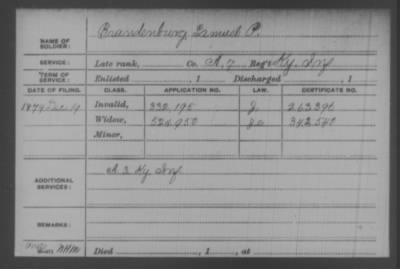 NAME OF SOLDIER: Brandenburg, Samuel P.
SERVICE: Late rank, Co. A, 7 Reg't Ky. Inf
TERM OF SERVICE: Enlisted , 1 Discharged , 1
DATE OF FILING. CLASS. APPLICATION NO. LAW. CERTIFICATE NO.
1879 Dec 19 Invalid, 332,195 263396
Widow, 524,950 342540
Minor,
ADDITIONAL SERVICES: A 3 Ky Inf
REMARKS:
Died , 1 , at